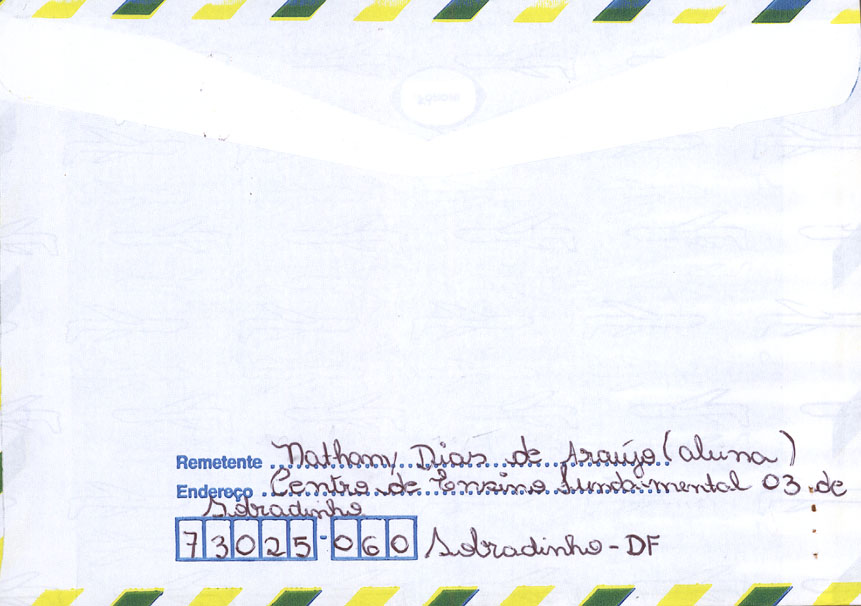 Remetente Nathany Dias de Araújo (aluna)
Endereço Centro de Ensino Fundamental 03 de
Sobradinho
73025-060 Sobradinho - DF